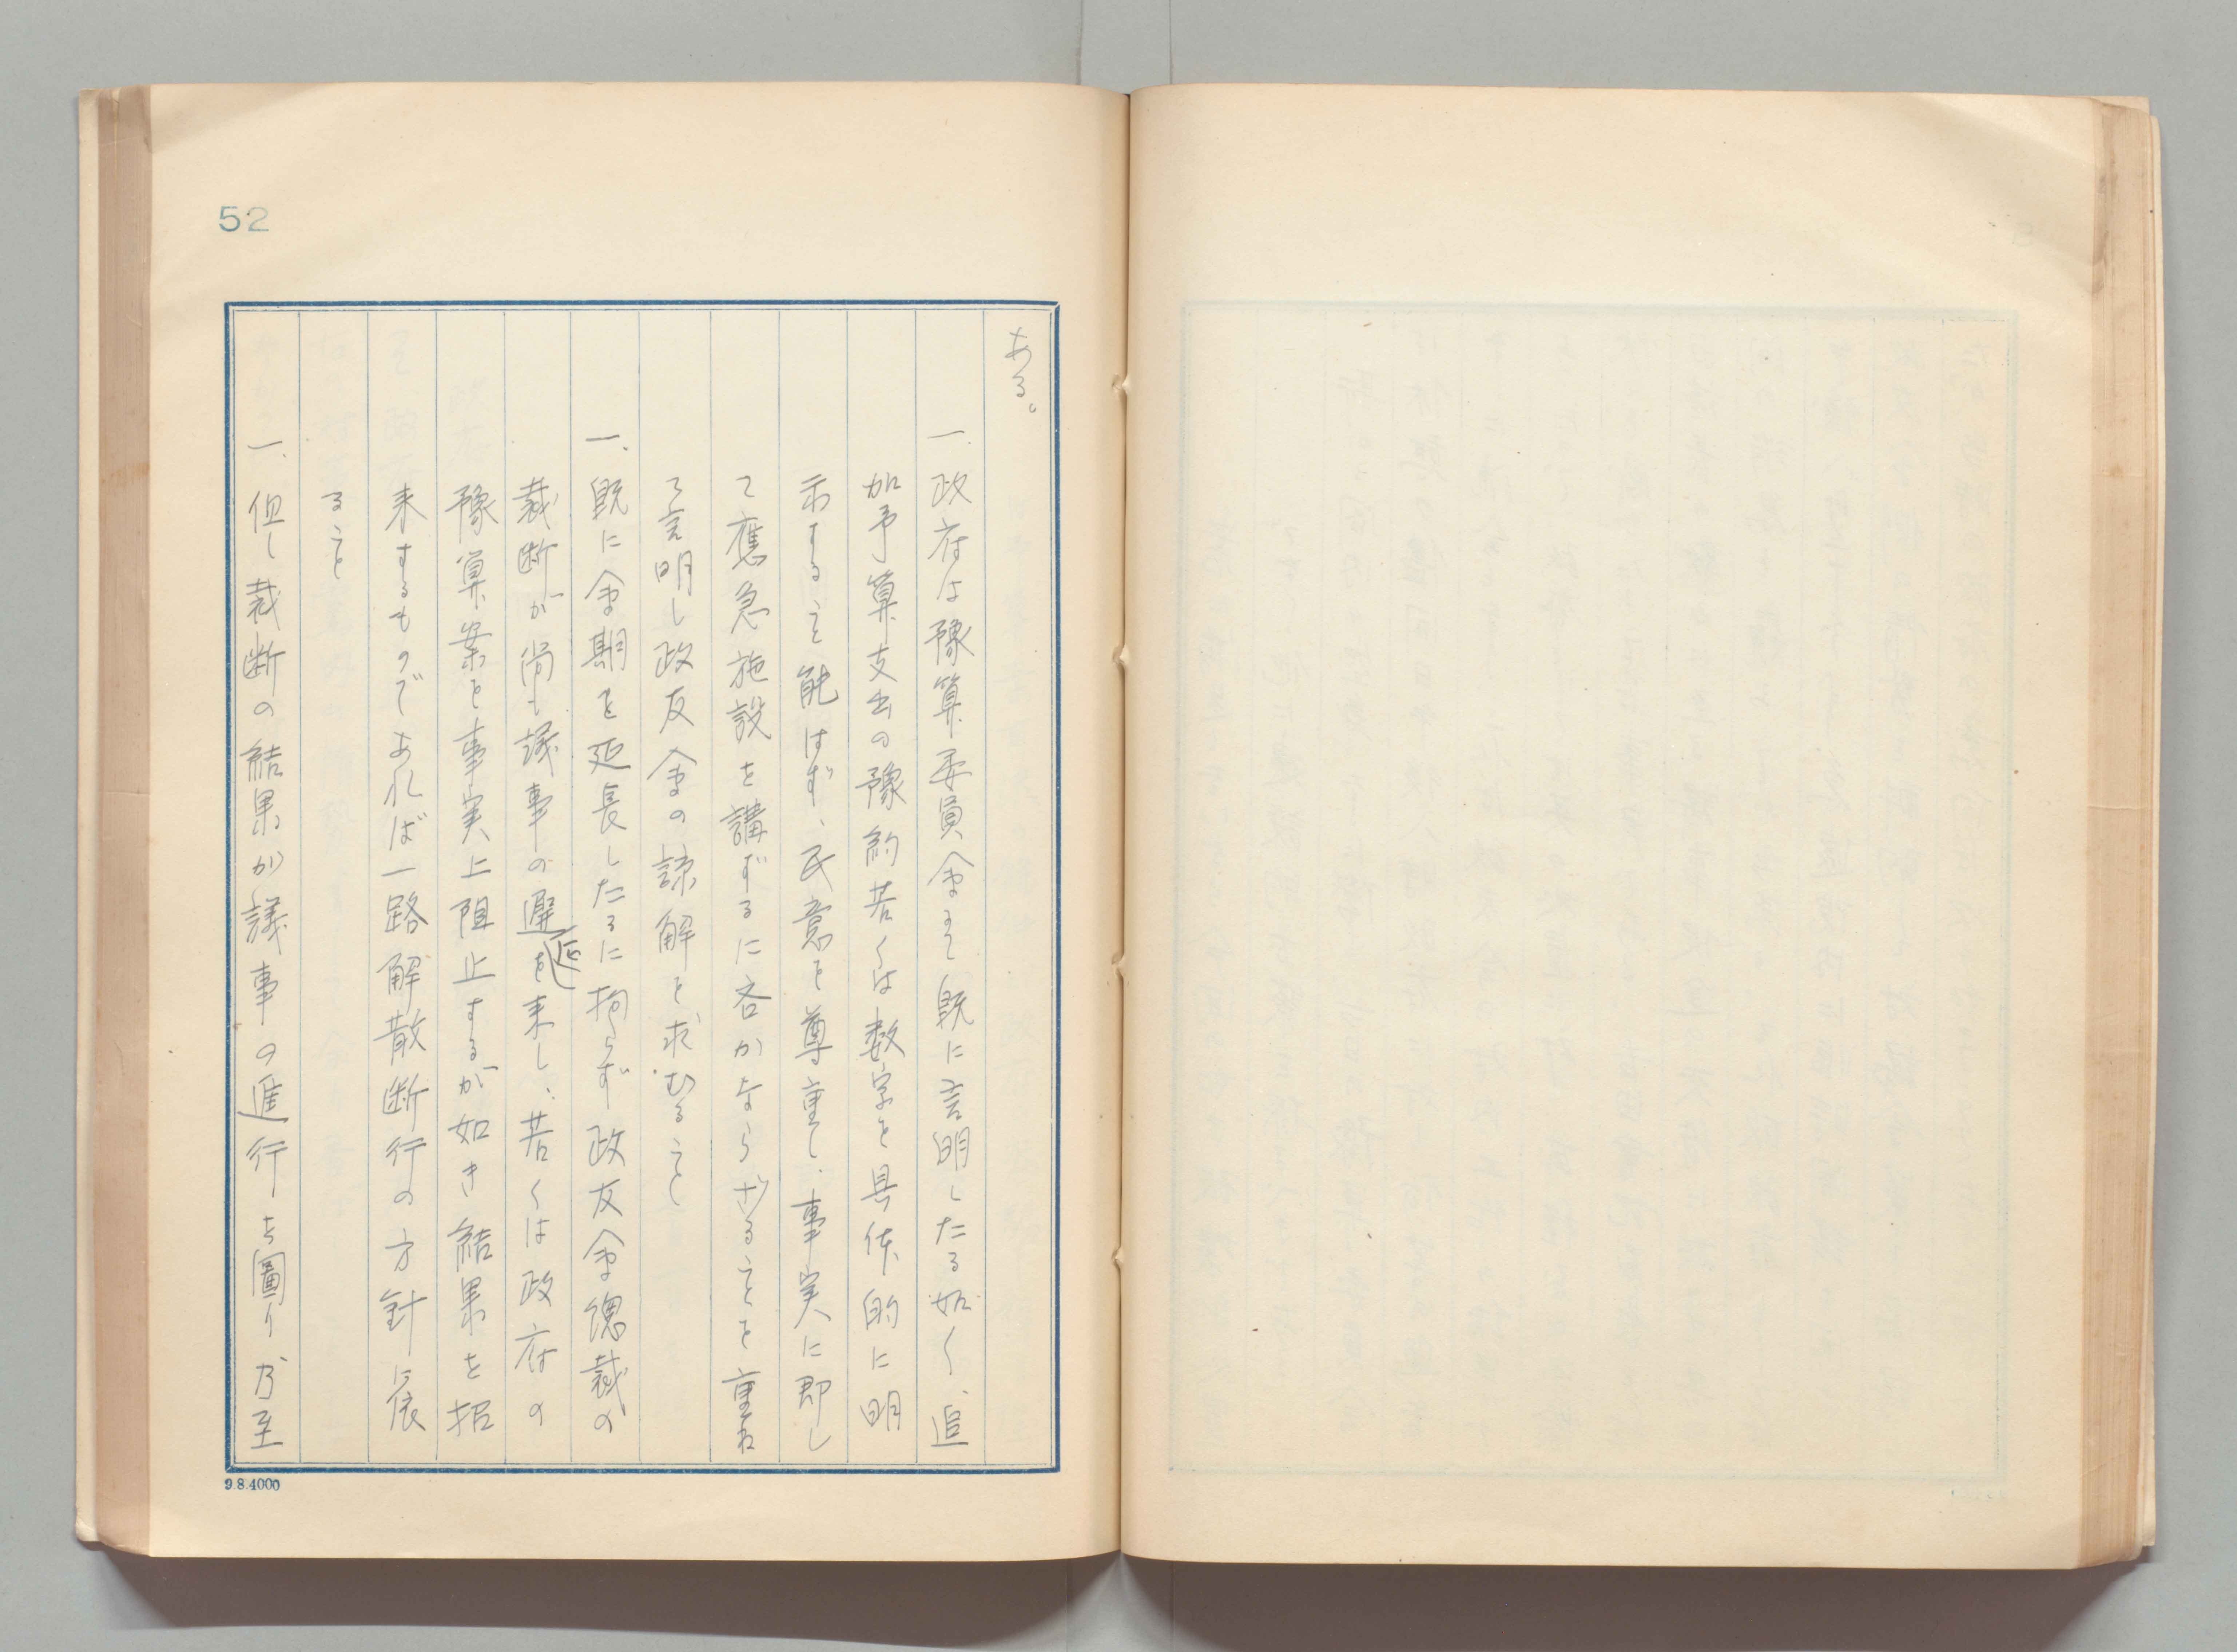 52
ある。
一、政府は豫算委員会にて既に言明したる如く、追
加予算支出の豫約若くは数字を具体的に明
示すること能はず、民意を尊重し、事実に即し
て應急施設を講ずるに吝かならざることを重ね
て言明し政友会の諒解を求むること
一、既に会期を延長したるに拘らず政友会総裁の
裁断が尚も議事の遅延を来し、若くは政府の
豫算案を事実上阻止するが如き結果を招
来するものであれば一路解散断行の方針に依
ること
一、但し裁断の結果が議事の進行を圖り乃至
9.8.4000